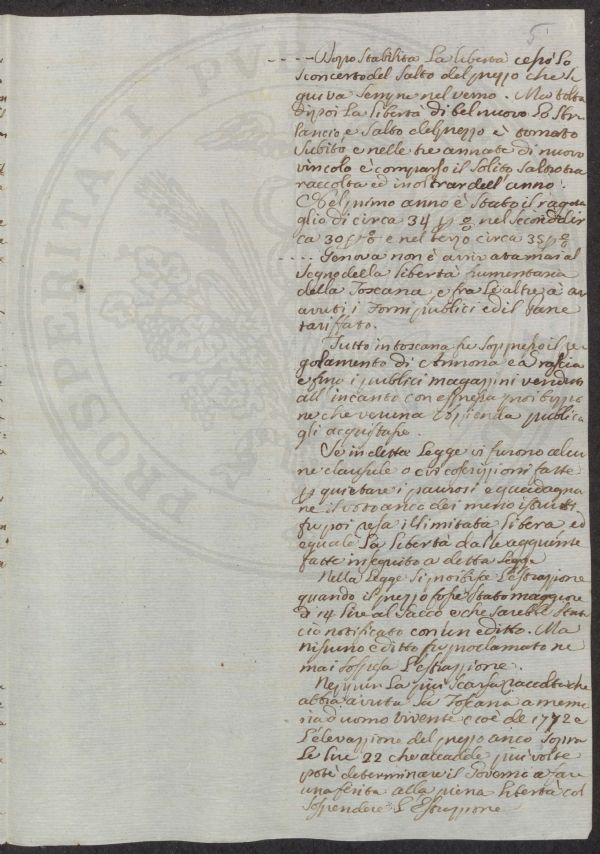 5
PROSPERITATI PVB
- - - - Dopo stabilita La libertà cessò Lo
sconcerto del salto del prezzo che se
guiva sempre nel verno. Ma tolta
dipoi La libertà di bel nuovo Lo stra
lancio e salto del prezzo è tornato
subito e nelle tre annate di nuovo
vincolo è comparso il solito salto tra
raccolta ed inoltrar dell'anno.
Nel primo anno è stato il raggua
glio di circa 34 p o/o nel secondo cir
ca 30 p o/o e nel terzo circa 35 p o/o
- - - - Genova non è arrivata mai al
segno della libertà frumentaria
della Toscana e fra Le altre à
avuti i Forni publici ed il pane
tariffato.
Tutto in toscana fu soppresso il re
golamento di Annona e Grascia
e fino i publici magazzini venduti
all'incanto con espressa proibizio
ne che veruna azzienda publica
gli acquistasse.
Se in detta Legge vi furono alcu
ne clausule o circoscrizzioni fatte
p quietare i paurosi e guadagna
ne il voto anco dei meno istruiti
fu poi resa illimitata libera ed
eguale La libertà dalle aggiunte
fatte in seguito a detta Legge
Nella Legge si proibisce L'estrazzione
quando il prezzo fosse stato maggiore
di 14 lire al sacco e che sarebbe stata
ciò notificato con un editto. Ma
nissuno editto fu proclamato ne
mai sospesa L'estrazzione.
Neppur La più scarsa raccolta che
abbia avuta La Toscana a memo
ria d'uomo vivente e cioè del 1772 e
L'elevazzione del prezzo anco sopra
Le lire 22 che accadde più volte
potè determinare il Governo a fare
una ferita alla piena libertà col
sospendere L'Estrazzione